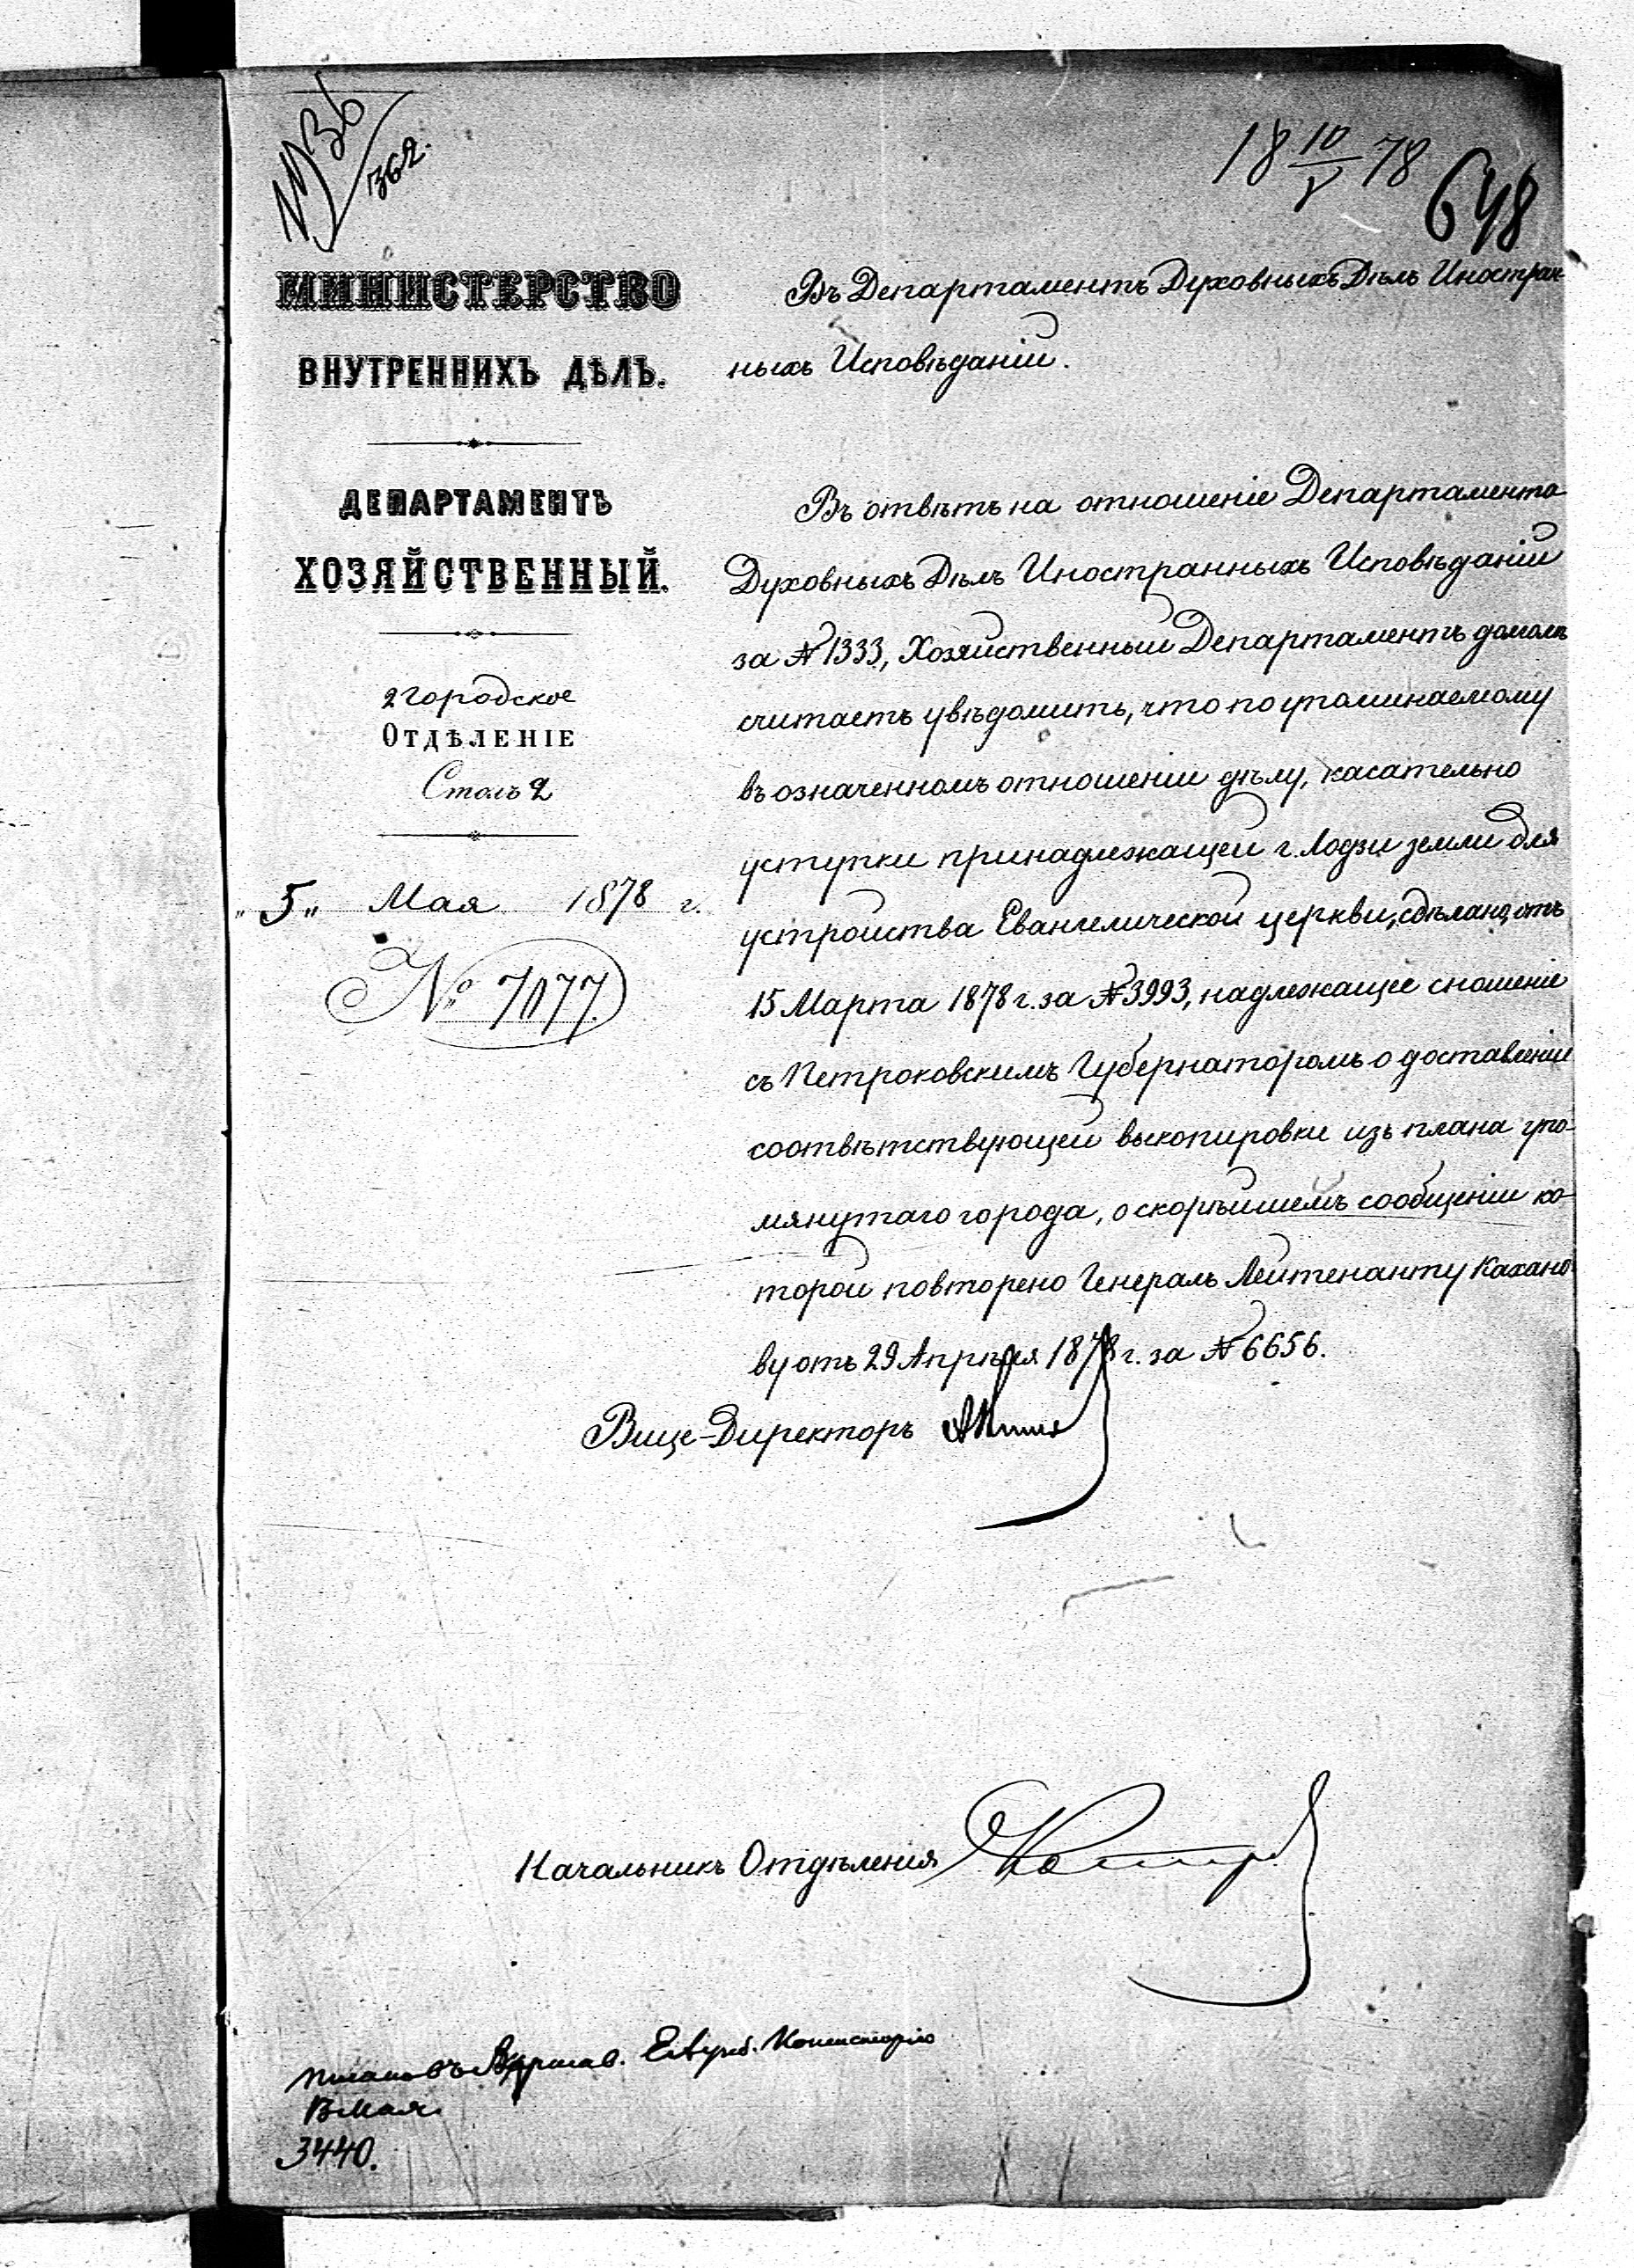 № 36
362.
18 10/V 78
648
МИНИСТЕРСТВО
ВНУТРЕННИХЪ ДѢЛЪ.
ДЕПАРТАМЕНТЪ
ХОЗЯЙСТВЕННЫЙ.
2 городское
ОТДѢЛЕНІЕ
Столъ 2
„5„ Мая 1878 г.
№ 7077.
Въ Департаментъ Духовныхъ Дѣлъ Иностран-
ныхъ Исповѣданій.
Въ отвѣтъ на отношеніе Департамента
Духовныхъ Дѣлъ Иностранныхъ Исповѣданій
за № 1333, Хозяйственный Департаментъ долгомъ
считаетъ увѣдомить, что по упоминаемому
въ означенномъ отношеніи дѣлу, касательно
уступки принадлежащей г. Лодзи земли для
устройства Евангелической церкви, сдѣлано, отъ
15 Марта 1878 г. за № 3993, надлежащее сношеніе
съ Петроковскимъ Губернаторомъ о доставленіи
соотвѣтствующей выкопировки изъ плана упо-
мянутаго города, о скорѣйшемъ сообщеніи ко-
торой повторено Генералъ Лейтенанту Кахано-
ву отъ 29 Апрѣля 1878 г. за № 6656.
Вице-Директоръ
Начальникъ Отдѣленія
Варшав. Консисторію
Мая
3440.